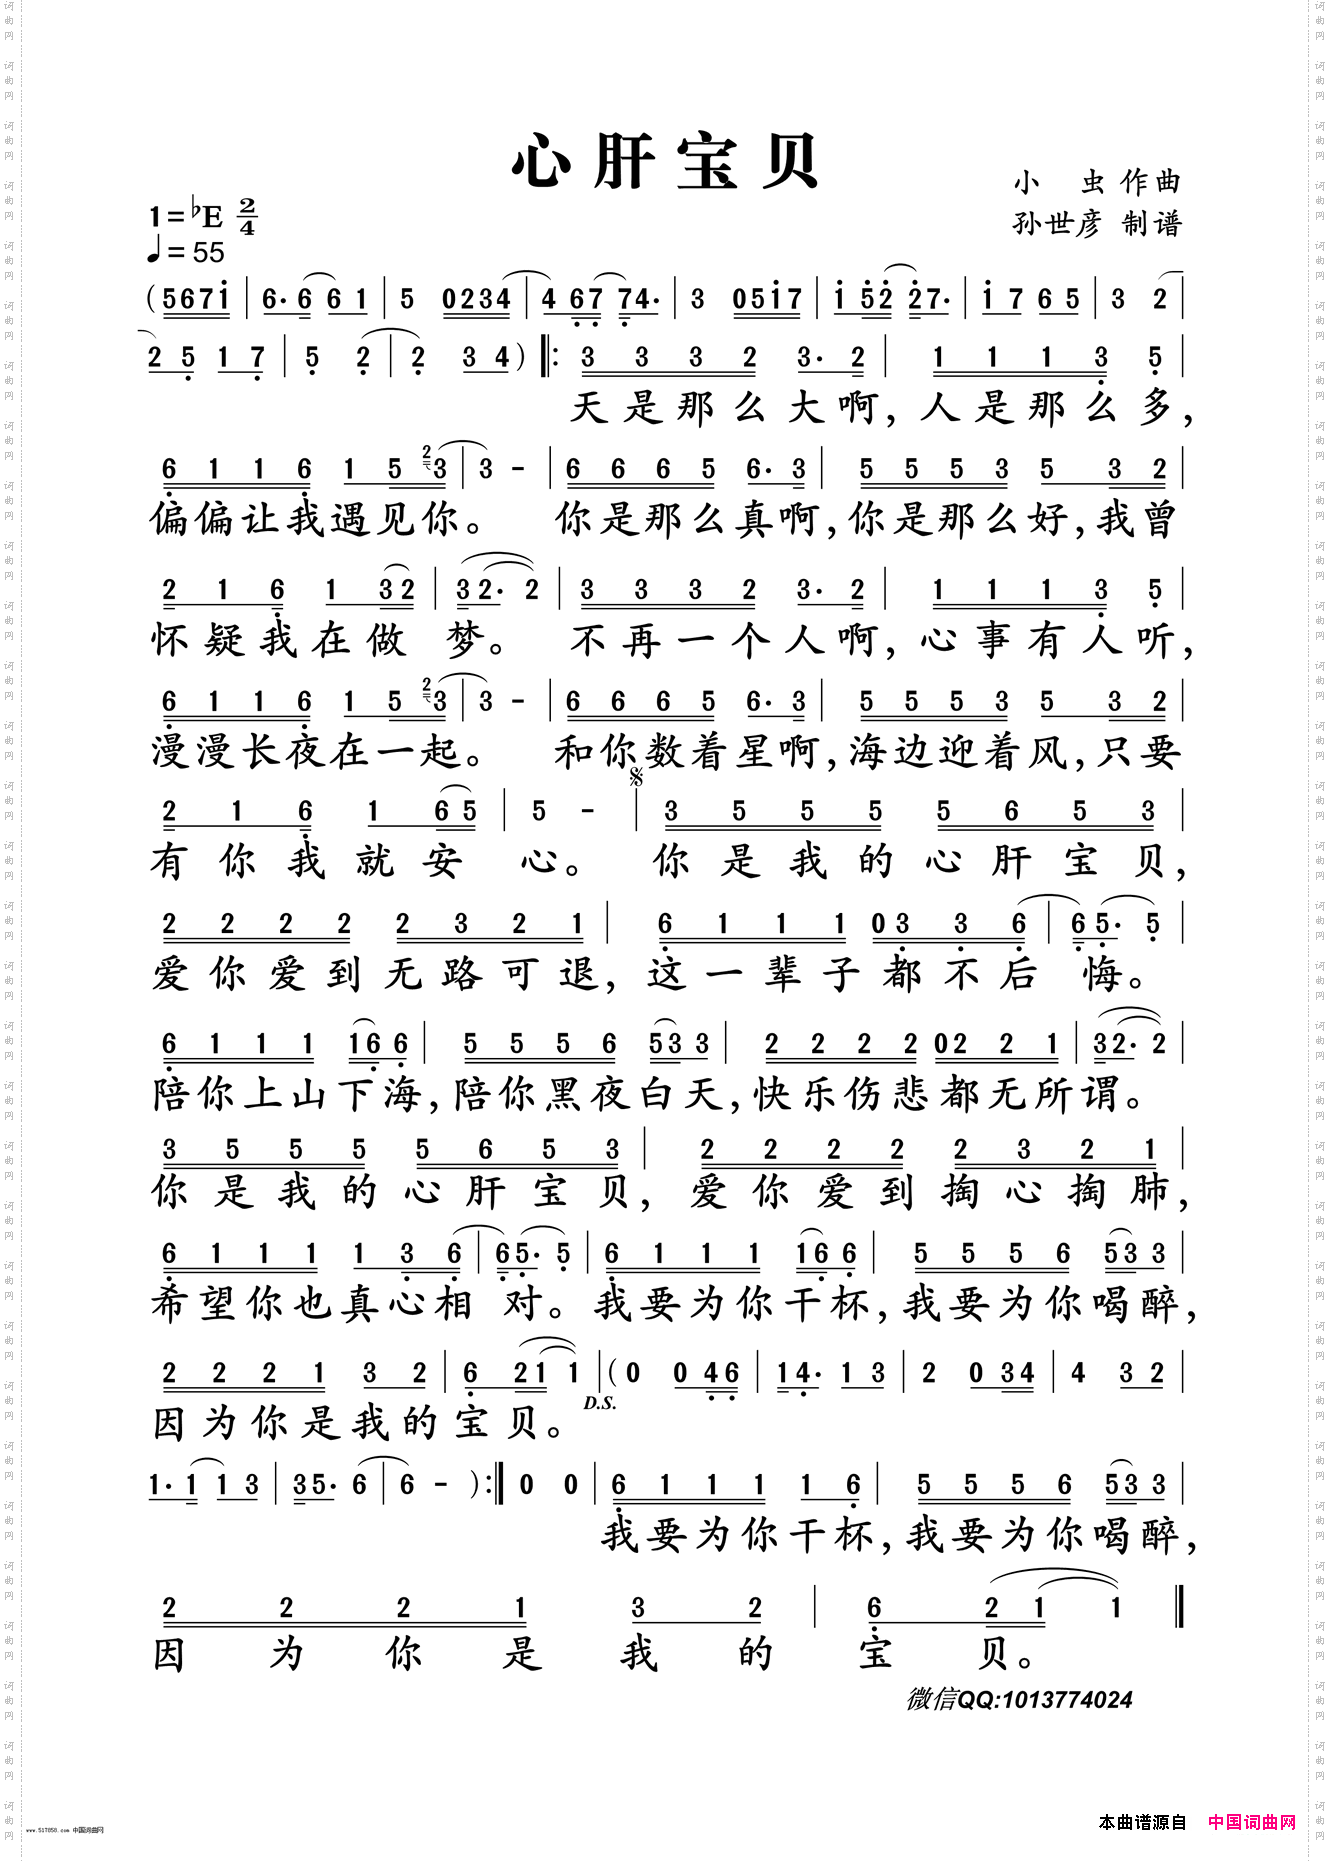 心肝宝贝
小 虫 作曲
孙世彦 制谱
1=♭E 2/4
♩=55
(5671 | 6. 6 6 1 | 5 0234 | 4 67 74. | 3 0517 | 1 52 27. | 1 7 6 5 | 3 2 |
2 5 1 7 | 5 2 | 2 3 4 ) ‖: 3 3 3 2 3. 2 | 1 1 1 3 5 |
天是那么大啊,人是那么多,
6 1 1 6 1 5 2 3 | 3 - | 6 6 6 5 6. 3 | 5 5 5 3 5 3 2 |
偏偏让我遇见你。 你是那么真啊,你是那么好,我曾
2 1 6 1 3 2 | 3 2. 2 | 3 3 3 2 3. 2 | 1 1 1 3 5 |
怀疑我在做 梦。 不再一个人啊,心事有人听,
6 1 1 6 1 5 2 3 | 3 - | 6 6 6 5 6. 3 | 5 5 5 3 5 3 2 |
漫漫长夜在一起。 和你数着星啊,海边迎着风,只要
2 1 6 1 6 5 | 5 - | 3 5 5 5 5 6 5 3 |
有你我就安 心。 你是我的心肝宝贝,
2 2 2 2 2 3 2 1 | 6 1 1 1 0 3 3 6 | 6 5. 5 |
爱你爱到无路可退,这一辈子都不后 悔。
6 1 1 1 16 6 | 5 5 5 6 53 3 | 2 2 2 2 02 2 1 | 32. 2 |
陪你上山下海,陪你黑夜白天,快乐伤悲都无所谓。
3 5 5 5 5 6 5 3 | 2 2 2 2 2 3 2 1 |
你是我的心肝宝贝, 爱你爱到掏心掏肺,
6 1 1 1 1 3 6 | 65. 5 | 6 1 1 1 16 6 | 5 5 5 6 53 3 |
希望你也真心相 对。我要为你干杯,我要为你喝醉,
2 2 2 1 3 2 | 6 21 1 | (0 0 46 | 14. 1 3 | 2 0 34 | 4 3 2 |
D.S.
因为你是我的宝贝。
1. 1 1 3 | 35. 6 | 6 - ) :‖ 0 0 | 6 1 1 1 1 6 | 5 5 5 6 53 3 |
我要为你干杯,我要为你喝醉,
2 2 2 1 3 2 | 6 2 1 1 ‖
因为你是我的宝贝。
微信QQ:1013774024
本曲谱源自 中国词曲网
www.517858.com 中国词曲网